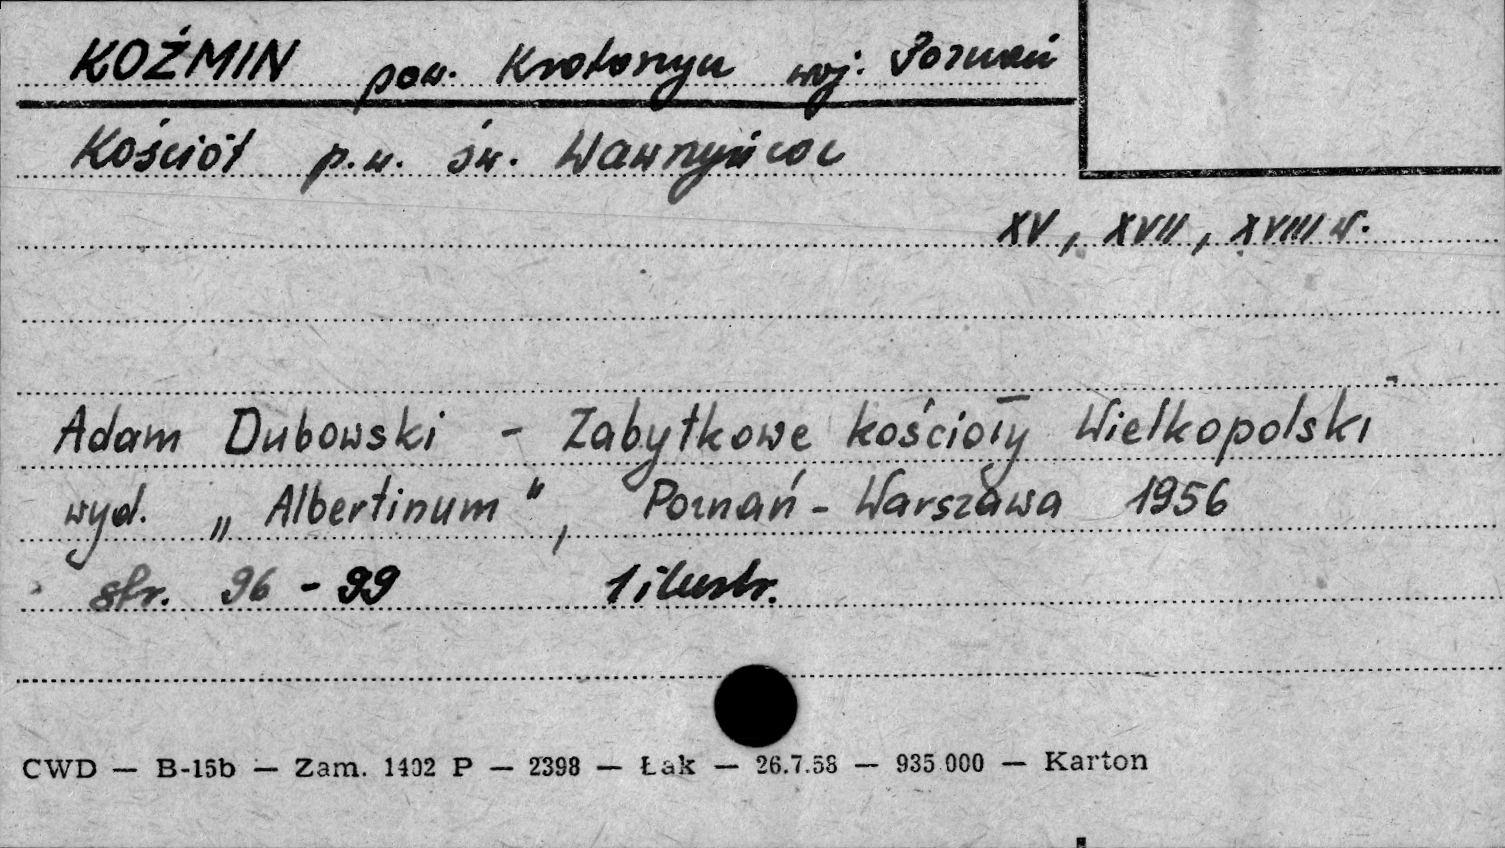 KOŹMIN pow. Krotoszyn woj. Poznań
Kościół p.w. św. Wawrzyńca
XV, XVII, XVIII w.
Adam Dubowski - Zabytkowe kościoły Wielkopolski
wyd. „Albertinum", Poznań - Warszawa 1956
str. 96 - 99 1 ilustr.
CWD — B-15b — Zam. 1402 P — 2398 — Łak — 26.7.58 — 935 000 — Karton